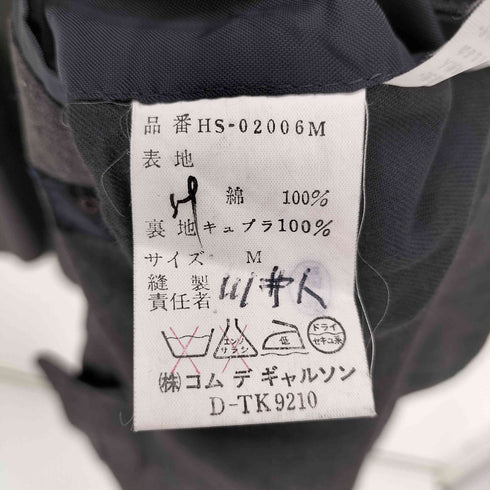 品番 HS-02006M
表地
綿 100%
裏地 キュプラ 100%
サイズ M
縫製
責任者
エンソ
サラシ
低
ドライ
セキユ系
(株)コム デ ギャルソン
D-TK9210